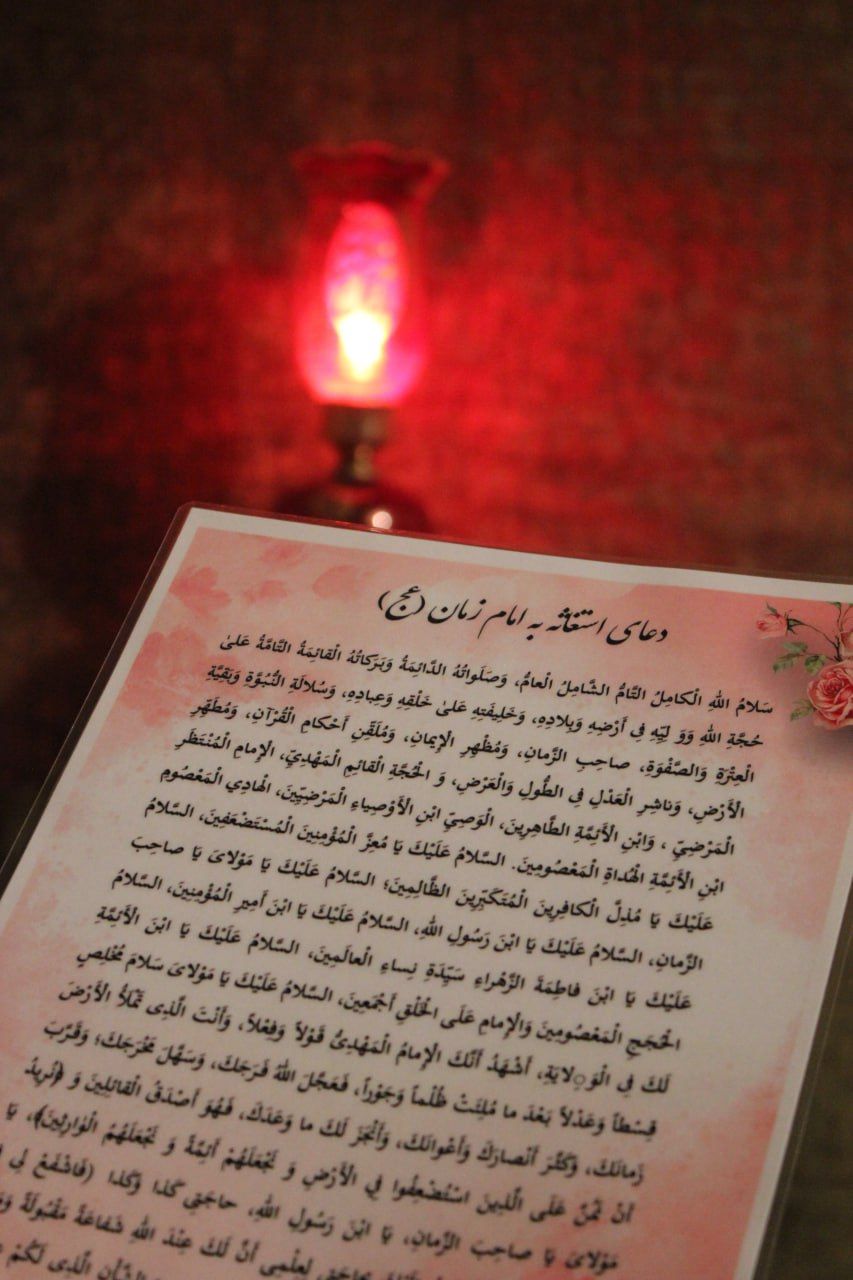 دعای استغاثه به امام زمان (عج)
سَلامُ اللهِ الْکامِلُ التّامُّ الشّامِلُ الْعامُّ، وَصَلَواتُهُ الدّائِمَةُ وَبَرَکاتُهُ الْقائِمَةُ التّامَّةُ عَلیٰ
حُجَّةِ اللهِ وَوَ لِیِّهِ فِي أَرْضِهِ وَبِلادِهِ، وَخَلیفَتِهِ عَلیٰ خَلْقِهِ وَعِبادِهِ، وَسُلالَةِ النُّبُوَّةِ وَبَقِیَّةِ
الْعِتْرَةِ وَالصَّفْوَةِ، صاحِبِ الزَّمانِ، وَمُظْهِرِ الْإِیمانِ، وَمُلَقِّنِ أَحْکامِ الْقُرْآنِ، وَمُطَهِّرِ
الْأَرْضِ، وَناشِرِ الْعَدْلِ فِي الطُّولِ وَالْعَرْضِ، وَ الْحُجَّةِ الْقائِمِ الْمَهْدِيِّ، الْإِمامِ الْمُنْتَظَرِ
الْمَرْضِيِّ ، وَابْنِ الْأَئِمَّةِ الطّاهِرِینَ، الْوَصِيِّ ابْنِ الْأَوْصِیاءِ الْمَرْضِیِّینَ، الْهادِي الْمَعْصُومِ
ابْنِ الْأَئِمَّةِ الْهُداةِ الْمَعْصُومِینَ. السَّلامُ عَلَیْكَ یَا مُعِزَّ الْمُؤْمِنِینَ الْمُسْتَضْعَفِینَ، السَّلامُ
عَلَیْكَ یَا مُذِلَّ الْکافِرِینَ الْمُتَکَبِّرِینَ الظّالِمِینَ؛ السَّلامُ عَلَیْكَ یَا مَوْلایَ یَا صاحِبَ
الزَّمانِ، السَّلامُ عَلَیْكَ یَا ابْنَ رَسُولِ اللهِ، السَّلامُ عَلَیْكَ یَا ابْنَ أَمِیرِ الْمُؤْمِنِینَ، السَّلامُ
عَلَیْكَ یَا ابْنَ فاطِمَةَ الزَّهْراءِ سَیِّدَةِ نِساءِ الْعالَمِینَ، السَّلامُ عَلَیْكَ یَا ابْنَ الْأَئِمَّةِ
الْحُجَجِ الْمَعْصُومِینَ وَالْإِمامِ عَلَی الْخَلْقِ أَجْمَعِینَ، السَّلامُ عَلَیْكَ یَا مَوْلایَ سَلامَ مُخْلِصٍ
لَكَ فِي الْوَِلایَةِ، أَشْهَدُ أَنَّكَ الْإِمامُ الْمَهْدِيُّ قَوْلاً وَفِعْلاً، وَأَنْتَ الَّذِی تَمْلَأُ الْأَرْضَ
قِسْطاً وَعَدْلاً بَعْدَ ما مُلِئَتْ ظُلْماً وَجَوْراً، فَعَجَّلَ اللهُ فَرَجَكَ، وَسَهَّلَ مَخْرَجَكَ؛ وَقَرَّبَ
زَمانَكَ، وَکَثَّرَ أَنْصارَكَ وَأَعْوانَكَ، وَأَنْجَزَ لَكَ ما وَعَدَكَ، فَهُوَ أَصْدَقُ الْقائِلِینَ وَ ﴿نُرِیدُ
أَنْ نَمُنَّ عَلَی الَّذِینَ اسْتُضْعِفُوا فِي الْأَرْضِ وَ نَجْعَلَهُمْ أَئِمَّةً وَ نَجْعَلَهُمُ الْوارِثِینَ﴾، یَا
مَوْلایَ یَا صاحِبَ الزَّمانِ، یَا ابْنَ رَسُولِ اللهِ، حاجَتِی کَذا وَکَذا (فَاشْفَعْ لِي
لِعِلْمِی أَنَّ لَكَ عِنْدَ اللهِ شَفاعَةً مَقْبُولَةً
الَّذِی لَکُمْ